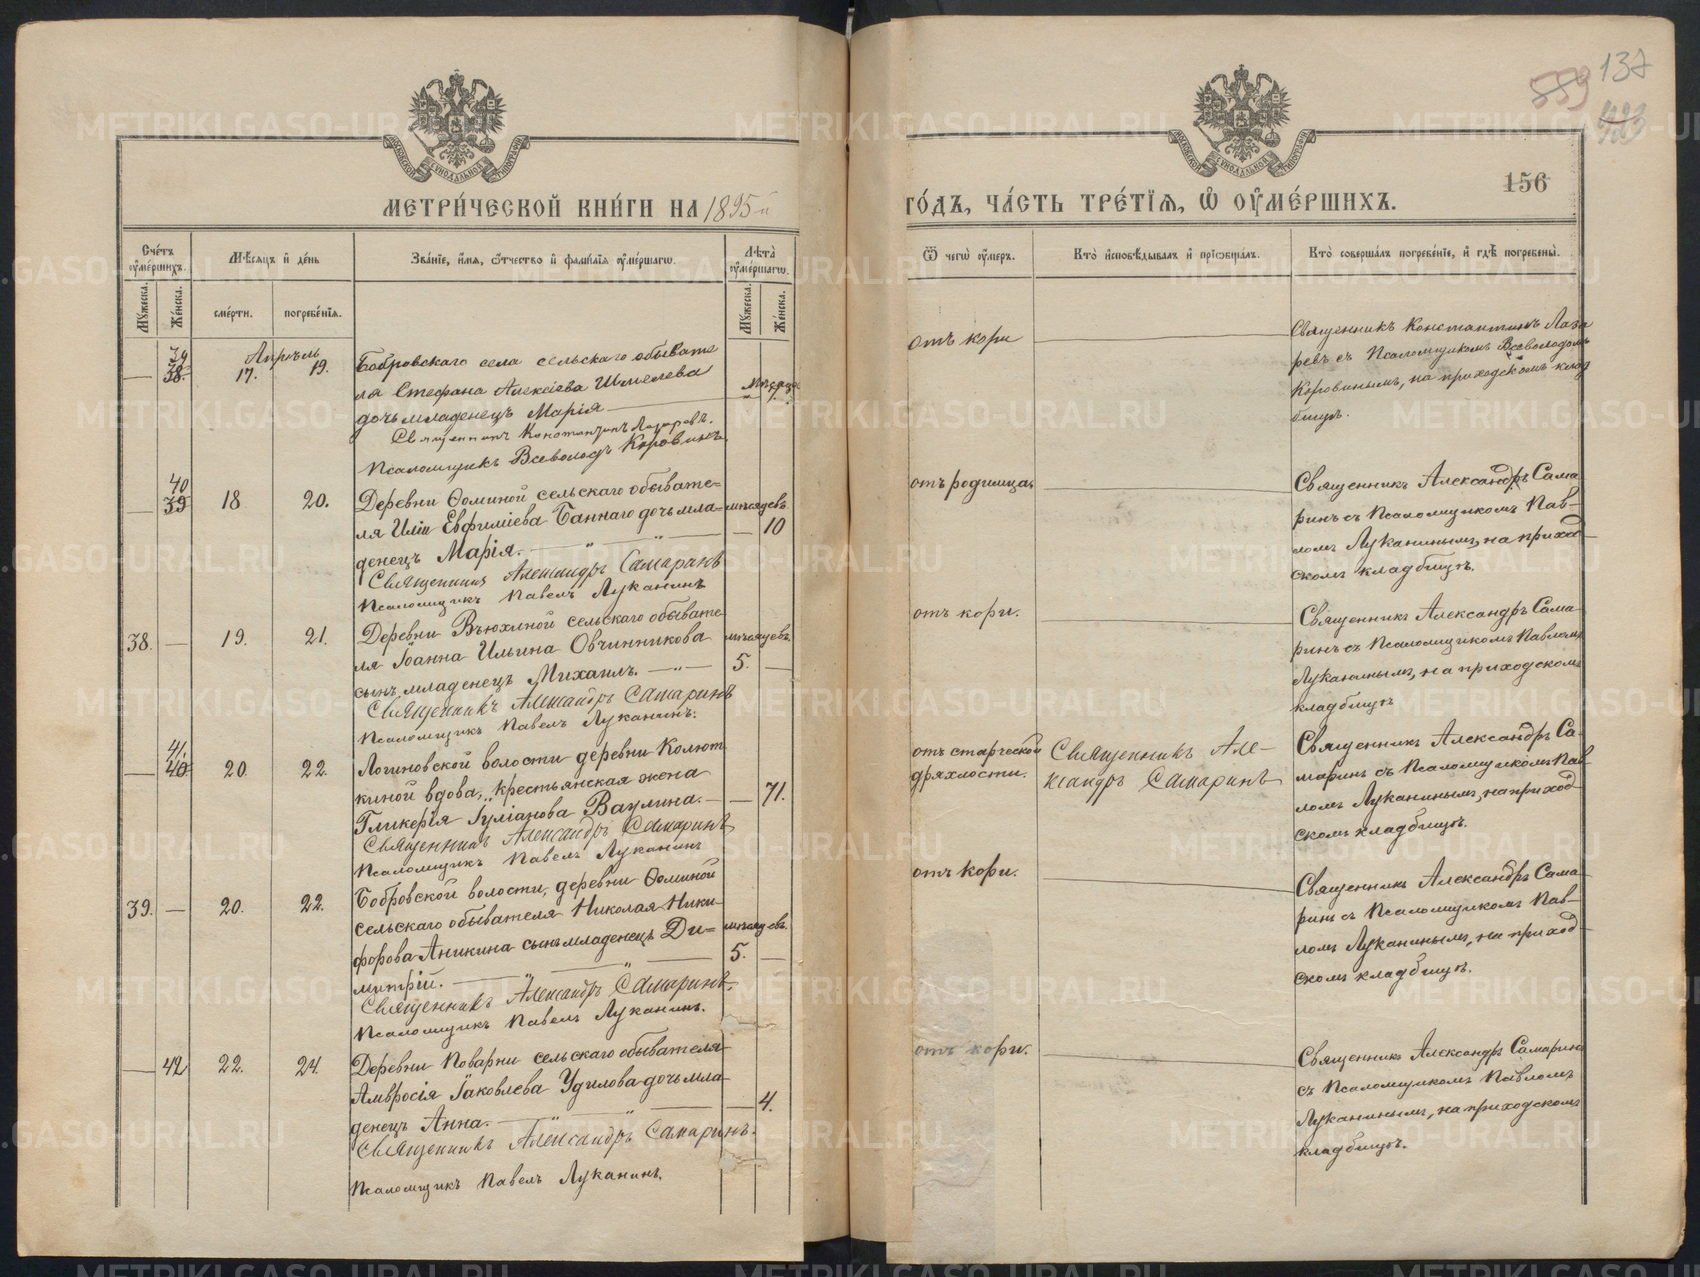 137
559
423
156
МОСКОВСКОЙ СѴНОДАЛЬНОЙ ТИПОГРАФІИ
МОСКОВСКОЙ СѴНОДАЛЬНОЙ ТИПОГРАФІИ
МЕТРИ́ЧЕСКОЙ КНИ́ГИ НА 1895-й
ГО́ДЪ, ЧА́СТЬ ТРЕ́ТІѦ, Ѡ҆ ОУ҆МЕ́РШИХЪ.
Сче́тъ оу҆ме́ршихъ.
Мꙋ́жеска.
Же́нска.
Мѣ́сѧцъ и҆ де́нь
сме́рти.
погребе́нїѧ.
Зва́нїе, и҆́мѧ, ѻ҆́тчество и҆ фамі́лїѧ оу҆ме́ршагѡ.
Лѣ́та̀ оу҆ме́ршагѡ.
Мꙋ́жеска.
Же́нска.
Ѿ чегѡ̀ оу҆́меръ.
Кто̀ и҆сповѣ́дывалъ и҆ прїѡбща́лъ.
Кто̀ соверша́лъ погребе́нїе, и҆ гдѣ̀ погребены̀.
39
38.
Апрѣль
17.
19.
Бобровскаго села сельскаго обывате
ля Стефана Алексіева Шмелева
дочь младенецъ Марія
Священникъ Константинъ Лазаревъ.
Псаломщикъ Всеволодъ Коровинъ.
мѣсяца
отъ кори
Священникъ Константинъ Лаза
ревъ съ Псаломщикомъ Всеволодомъ
Коровинымъ, на приходскомъ клад
бищѣ.
40
39
18
20.
Деревни Ѳоминой сельскаго обывате=
ля Иліи Евфиміева Баннаго дочь мла-
денецъ Марія.
Священникъ Александръ Самаринъ
Псаломщикъ Павелъ Луканинъ
мѣсяцевъ
10
отъ родимца
Священникъ Александръ Сама
ринъ съ Псаломщикомъ Пав-
ломъ Луканинымъ, на приход-
скомъ кладбищѣ.
38.
19.
21.
Деревни Вьюхиной сельскаго обывате
ля Іоанна Ильина Овчинникова
сынъ, младенецъ Михаилъ.
Священникъ Александръ Самаринъ
Псаломщикъ Павелъ Луканинъ.
мѣсяцевъ
5.
отъ кори.
Священникъ Александръ Сама-
ринъ съ Псаломщикомъ Павломъ
Луканинымъ, на приходскомъ
кладбищѣ
41.
40
20.
22.
Логиновской волости деревни Колют
киной вдова, крестьянская жена
Гликерія Іуліанова Ваулина.
Священникъ Александръ Самаринъ
Псаломщикъ Павелъ Луканинъ
71.
отъ старческой
дряхлости.
Священникъ Але-
ксандръ Самаринъ
Священникъ Александръ Са-
маринъ съ Псаломщикомъ Пав
ломъ Луканинымъ, на приход
скомъ кладбищѣ.
39.
20.
22.
Бобровской волости, деревни Ѳоминой
сельскаго обывателя Николая Ники-
форова Аникина сынъ младенецъ Ди=
митрій.
Священникъ Александръ Самаринъ.
Псаломщикъ Павелъ Луканинъ.
мѣсяцевъ.
5.
отъ кори.
Священникъ Александръ Сама-
ринъ съ Псаломщикомъ Пав-
ломъ Луканинымъ, на приход-
скомъ кладбищѣ.
42
22.
24.
Деревни Поварни сельскаго обывателя
Амвросія Іаковлева Удилова дочь мла-
денецъ Анна.
Священникъ Александръ Самаринъ.
Псаломщикъ Павелъ Луканинъ.
4.
отъ кори.
Священникъ Александръ Самаринъ
съ Псаломщикомъ Павломъ
Луканинымъ, на приходскомъ
кладбищѣ.
METRIKI.GASO-URAL.RU